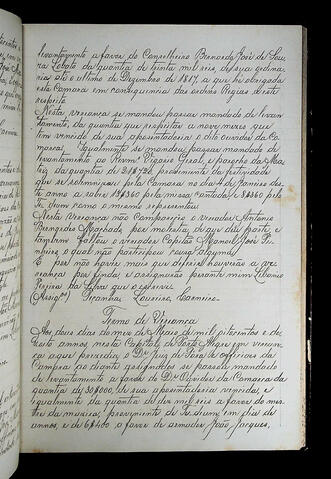 levantamento a favor do Conselheiro Bernardo José de Sou
za Lobato da quantia de trinta mil reis, de sua ordina
ria até o ultimo de Dezembro de 1817, a que he obrigada
esta Camara em consequencia das ordens Regias a este
respeito.
Nesta vereança se mandou passar mandado de levan
tamento, da quantia que respeitar a nove mezes que
tem vencido de sua aposentadoria o dito Ouvidor da Co
marca. Igualmente se mandou passar mandado de
levantamento ao Revm. Vigario Geral, e parocho da Ma
triz da quantia de proveniente da festividade
que se solemnizou pela Camara no dia 4 de Janeiro des
te anno a saber pela missa cantada e pelo
Te Deum como o mesmo representou.
Nesta Vereança não compareceo o vereador Antonio
Bernardes Machado, por molestia, de que deu parte e
tambem faltou o vereador Capitão Manoel José Pi
nheiro, o qual não participou causa alguma.
E por não haver mais que deferir houverão a ve
reança por finda, e assignarão perante mim Libanio
Pereira da Silva que o escrevi.
(Assig.) Loureiro,
Termo de Vereança
Aos dous dias do mez de Maio de mil oitocentos e de
zeste annos nesta Capital de Porto Alegre em verean
ça aque presidio o Dr. Juiz de Fora e officiaes da
Camara ao diante assignados se passou mandado
de levantamento a favor do Dr. Ouvidor da Comarca da
quantia 30$000, de sua aposentadoria vencida, e
igualmente da quantia de dez mil reis a favor do mes
tre da musica, proveniente de Te-dium em dia de
annos, e de 6$400 a favor de armador João Jacques,